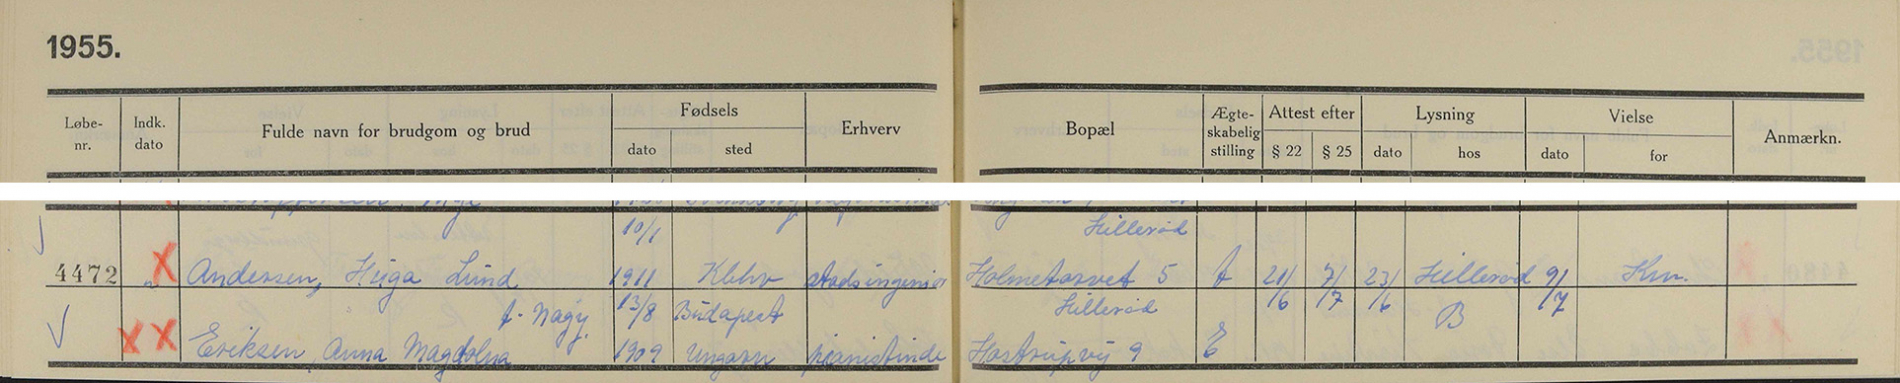 1955.
Løbe-nr. Indk. dato Fulde navn for brudgom og brud Fødsels dato sted Erhverv Bopæl Ægte-skabelig stilling Attest efter § 22 § 25 Lysning dato hos Vielse dato for Anmærkn.
10/1 Hillerød
4472 Andersen, Helga Lund 1911 Kbhv stadsingeniør Holmetorvet 5 f 21/6 7/7 23/6 Hillerød 9/7 Km.
f. Nagy 13/8 Budapest Hillerød B
Eriksen, Anna Magdolna 1909 Ungarn pianistinde Hostrupvej 9 E